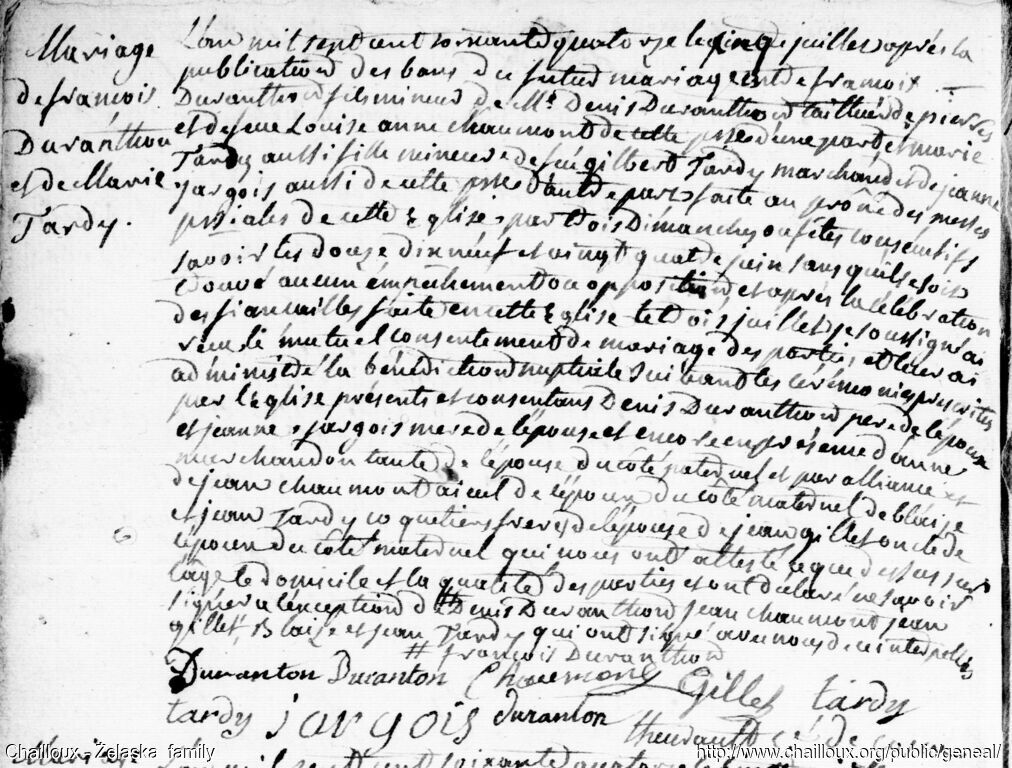 Mariage
de francois
Duranthon
et de Marie
Tardy.
L'an mil sept cent soixante quatorze le cinq de juillet après la
publication des bans du futur mariage entre francois
Duranthon fils mineur de Mr. Denis Duranthon tailleur de pierres
et de feue Louise anne chaumont de cette psse d'une part et marie
Tardy aussi fille mineure de feu gilbert Tardy marchand et de jeanne
jargois aussi de cette psse d'autre part faite au prône des messes
pssiales de cette Eglise par trois Dimanches ou fêtes consecutifs
savoir les douse dixneuf et vingt quatre de juin sans qu'ils se soit
trouvé aucun émpechement ou opposition et après la célébration
des fiancailles faite en cette Eglise le trois juillet je soussigné ai
recu le mutuel consentement de mariage des parties et leur ai
administré la bénédiction nuptiale suivant les cérémonies prescrites
par l'église présents et consentans Denis Duranthon pere de l'époux
et jeanne jargois mere de l'épouse et encore en présence d'anne
marchandon tante de l'épouse du côté paternel et par alliance et
de jean chaumont aieul de l'époux du côté maternel de blaise
et jean Tardy coquetiers freres de l'épouse de jean gillet oncle de
l'époux du côté maternel qui nous ont attesté ce que dessus sur
l'age le domicile et la qualité des parties et ont déclaré ne savoir
signer a l'exception de # Denis Duranthon jean chaumont jean
gillet, Blaise et jean Tardy qui ont signé avec nous de ce interpellés
# francois Duranthon
Duranton Duranton Chaumont Gillet tardy
tardy jargois duranton
theurault curé de
Chailloux - Zelaska family
http://www.chailloux.org/public/geneal/